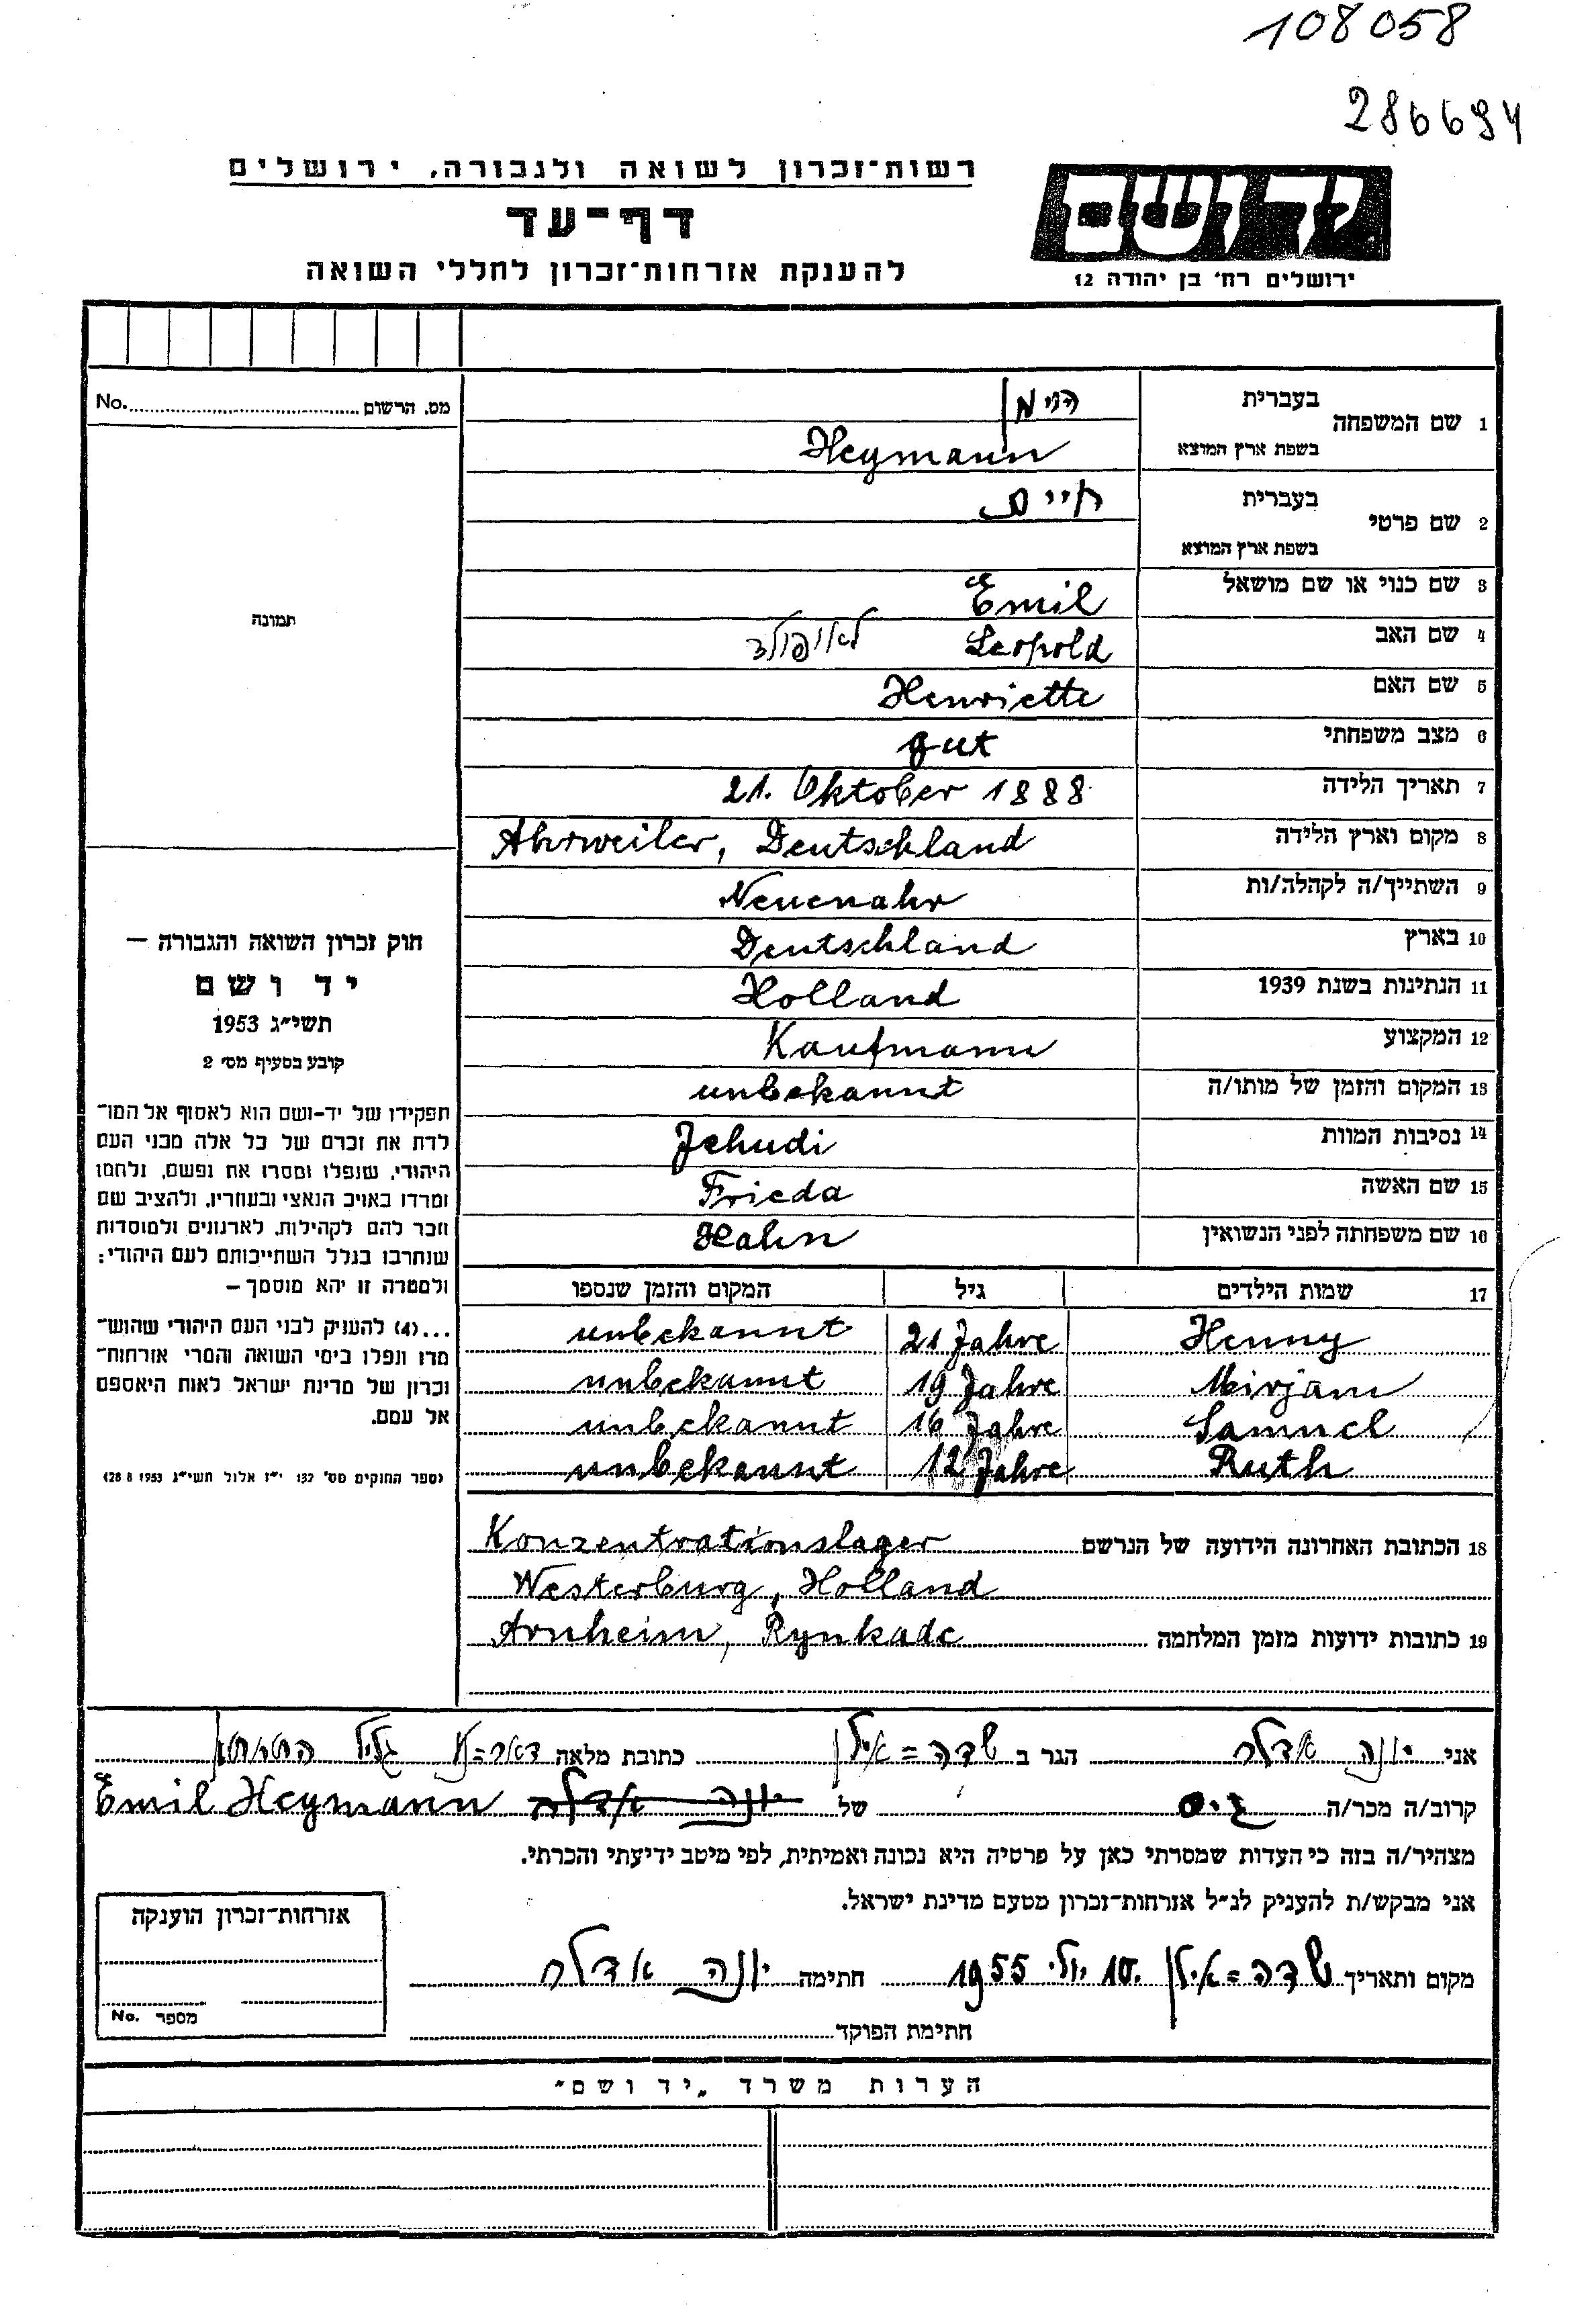 108058
286694
רשות־זכרון לשואה ולגבורה, ירושלים
דף־עד
להענקת אזרחות־זכרון לחללי השואה
יד ושם
ירושלים רח' בן יהודה 12
No. מס. הרשום
תמונה
1 שם המשפחה בעברית הימן
בשפת ארץ המוצא Heymann
2 שם פרטי בעברית חיים
בשפת ארץ המוצא
3 שם כנוי או שם מושאל Emil
4 שם האב Leopold לאופולד
5 שם האם Henriette
6 מצב משפחתי gut
7 תאריך הלידה 21. Oktober 1888
8 מקום וארץ הלידה Ahrweiler, Deutschland
9 השתייך/ה לקהלה/ות Neuenahr
10 בארץ Deutschland
11 הנתינות בשנת 1939 Holland
12 המקצוע Kaufmann
13 המקום והזמן של מותו/ה unbekannt
14 נסיבות המוות Jehudi
15 שם האשה Frieda
16 שם משפחתה לפני הנשואין Hahn
17 שמות הילדים גיל המקום והזמן שנספו
Henny 21 Jahre unbekannt
Mirjam 19 Jahre unbekannt
Samuel 16 Jahre unbekannt
Ruth 12 Jahre unbekannt
18 הכתובת האחרונה הידועה של הנרשם Konzentrationslager
Westerburg, Holland
19 כתובות ידועות מזמן המלחמה Arnheim, Rynkade
חוק זכרון השואה והגבורה –
יד ושם
תשי"ג 1953
קובע בסעיף מס' 2
תפקידו של יד-ושם הוא לאסוף אל המו־
לדת את זכרם של כל אלה מבני העם
היהודי, שנפלו ומסרו את נפשם, נלחמו
ומרדו באויב הנאצי ובעוזריו, ולהציב שם
וזכר להם לקהילות, לארגונים ולמוסדות
שנחרבו בגלל השתייכותם לעם היהודי;
ולמטרה זו יהא מוסמך –
...(4) להעניק לבני העם היהודי שהוש־
מדו ונפלו בימי השואה והמרי אזרחות־
זכרון של מדינת ישראל לאות היאספם
אל עמם.
(ספר החוקים מס' 132 י"ז אלול תשי"ג 28.8.1953)
אני יונה אדלר הגר ב שדה=אילן כתובת מלאה דאר=נע גליל התחתון
קרוב/ה מכר/ה גיס של יונה אדלר Emil Heymann
מצהיר/ה בזה כי העדות שמסרתי כאן על פרטיה היא נכונה ואמיתית, לפי מיטב ידיעתי והכרתי.
אני מבקש/ת להעניק לנ"ל אזרחות־זכרון מטעם מדינת ישראל.
מקום ותאריך שדה=אילן 10. יולי 1955 חתימה יונה אדלר
חתימת הפוקד
אזרחות־זכרון הוענקה
No. מספר
הערות משרד „יד ושם"